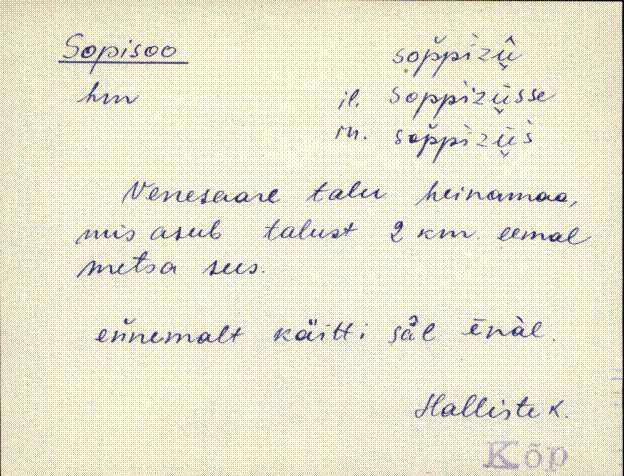 Sopisoo sop̆pìzû̬
hm il. soppìzü̬sse
in. sop̆pìzǜ̬s
Venesaare talu heinamaa,
mis asub talust 2 km. eemal
metsa sees.
eňnemalt käitti säl ēnàl.
Halliste K.
Kõp